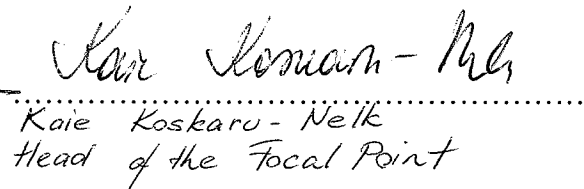 Kaie Koskaru-Nelk
Kaie Koskaru-Nelk
Head of the Focal Point